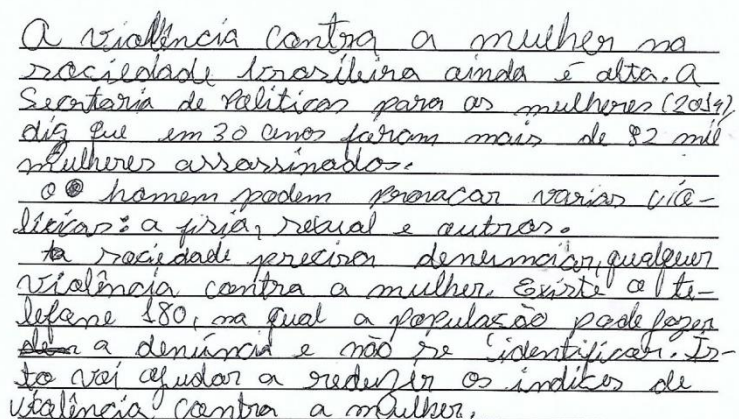 A violência contra a mulher na
sociedade brasileira ainda é alta. A
Secretaria de Politicas para as mulheres (2014)
diz que em 30 anos foram mais de 92 mil
mulheres assassinados.
o homem podem provocar varias
a sexual e outros.
a sociedade precisa denunciar, qualquer
violência contra a mulher. Existe o te-
lefone 180, na qual a população pode fazer
a denúncia e não se identificar. Is-
to vai ajudar a reduzir os índices de
violência contra a mulher.